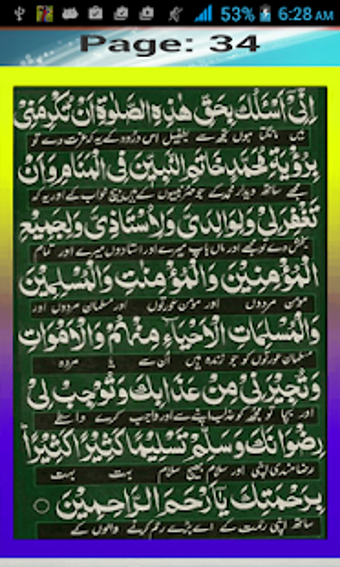 53% 6:28 AM
Page: 34
اِنِّیْٓ اَسْئَلُکَ بِحَقِّ هٰذِهِ الصَّلٰوةِ اَنْ تُکْرِمَنِیْ
میں مانگتا ہوں تجھ سے بطفیل اس درود کے یہ کہ عزت دے تو
بِرُؤْیَةِ مُحَمَّدٍ خَاتَمِ النَّبِیّٖنَ فِی الْمَنَامِ وَاَنْ
مجھے ساتھ دیدار محمدؐ کے جو مہر نبیوں کے ہیں بیچ خواب کے اور یہ کہ
تَغْفِرَ لِیْ وَلِوَالِدَیَّ وَلِاُسْتَاذِیْ وَلِجَمِیْعِ
بخش دے تو مجھے اور ماں باپ میرے اور استادوں میرے اور تمام
الْمُؤْمِنِیْنَ وَالْمُؤْمِنٰتِ وَالْمُسْلِمِیْنَ
مومن مردوں اور مومن عورتوں اور مسلمان مردوں اور
وَالْمُسْلِمَاتِ الْاَحْیَآءِ مِنْهُمْ وَالْاَمْوَاتِ
مسلمان عورتوں کو جو زندہ ہیں ان سے یا مردہ
وَتُجِیْرَنِیْ مِنْ عَذَابِکَ وَتُوْجِبَ لِیْ
اور بچا تو مجھ کو عذاب اپنے سے اور واجب کرے واسطے
رِضْوَانَکَ وَسَلِّمْ تَسْلِیْمًا کَثِیْرًا کَثِیْرًا
رضامندی اپنی اور سلام بھیج سلام بہت بہت
بِرَحْمَتِکَ یَآاَرْحَمَ الرَّاحِمِیْنَ
ساتھ اپنی رحمت کے اے بڑے رحم کرنے والوں کے